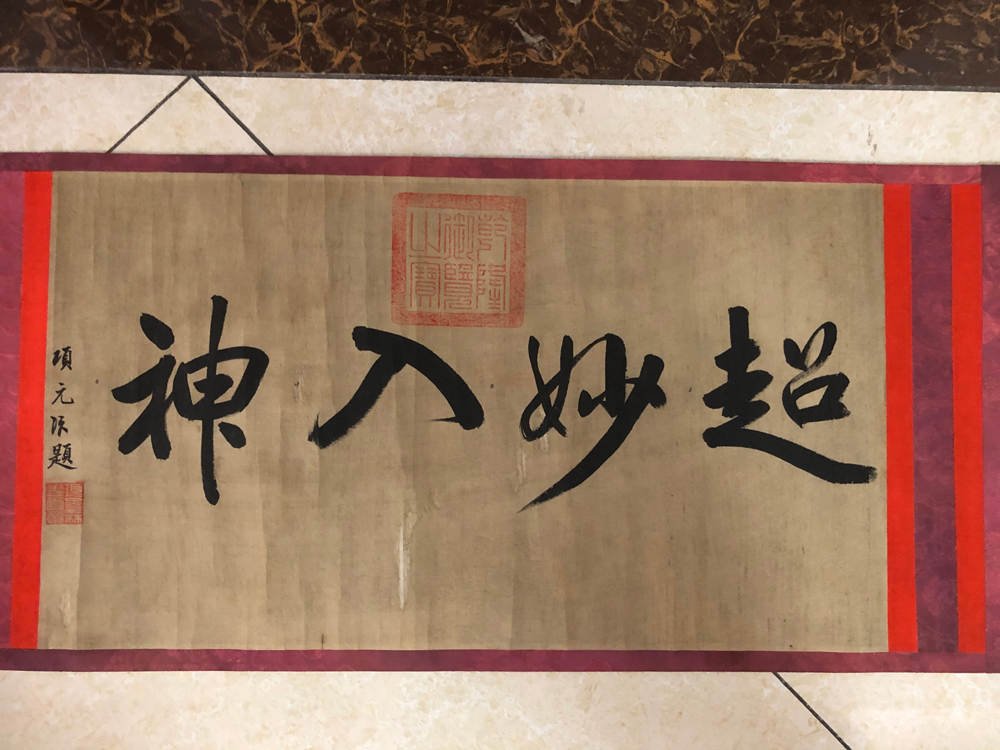 超妙入神
乾隆
御覽
之寶
項元汴題